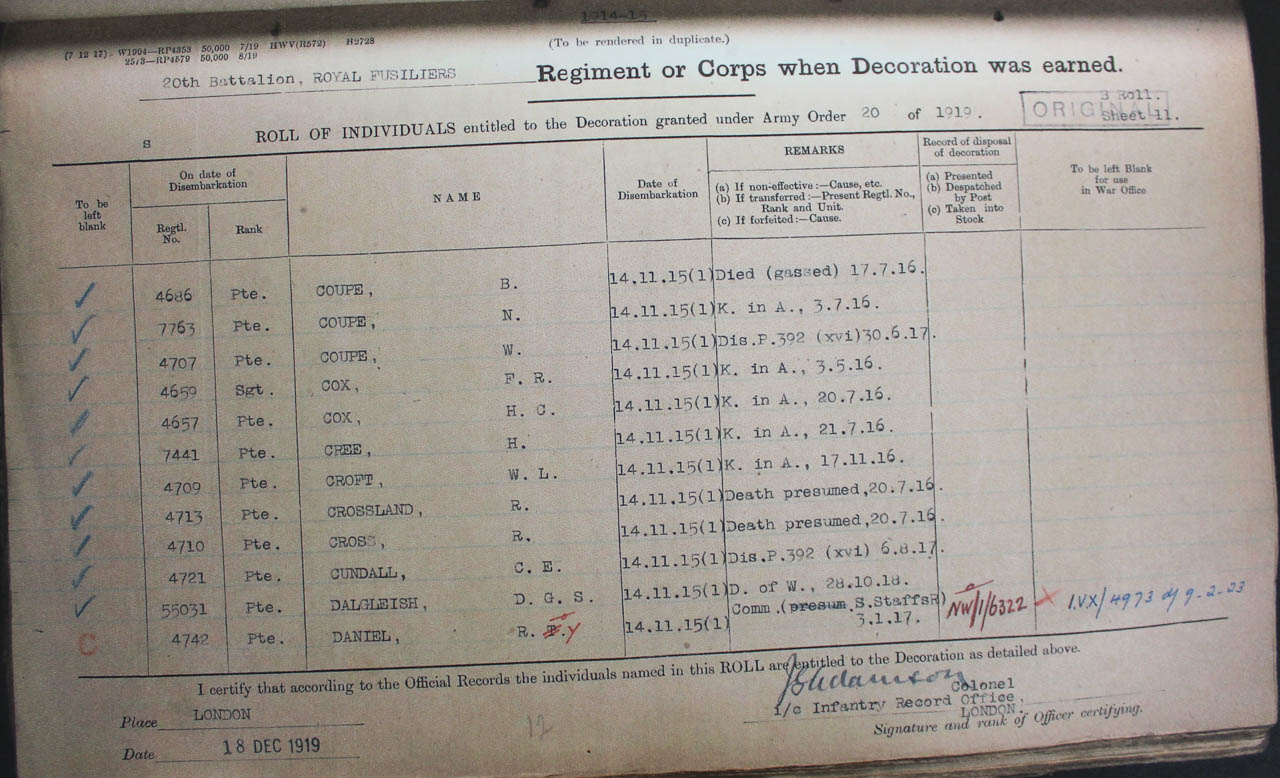 1914-15
(7 12 17) W1904—RP4353 50,000 7/19 HWV(R572) H9728
2573—RP4579 50,000 8/19
(To be rendered in duplicate.)
20th Battalion, ROYAL FUSILIERS Regiment or Corps when Decoration was earned.
ORIGINAL
3 Roll.
Sheet 11.
S
ROLL OF INDIVIDUALS entitled to the Decoration granted under Army Order 20 of 1919.
To be left blank
On date of Disembarkation
Regtl. No.
Rank
NAME
Date of Disembarkation
REMARKS
(a) If non-effective:—Cause, etc.
(b) If transferred:—Present Regtl. No., Rank and Unit.
(c) If forfeited:—Cause.
Record of disposal of decoration
(a) Presented
(b) Despatched by Post
(c) Taken into Stock
To be left Blank for use in War Office
4686 Pte. COUPE, B. 14.11.15(1) Died (gassed) 17.7.16.
7763 Pte. COUPE, N. 14.11.15(1) K. in A., 3.7.16.
4707 Pte. COUPE, W. 14.11.15(1) Dis.P.392 (xvi)30.6.17.
4659 Sgt. COX, F. R. 14.11.15(1) K. in A., 3.5.16.
4657 Pte. COX, H. C. 14.11.15(1) K. in A., 20.7.16.
7441 Pte. CREE, H. 14.11.15(1) K. in A., 21.7.16.
4709 Pte. CROFT, W. L. 14.11.15(1) K. in A., 17.11.16.
4713 Pte. CROSSLAND, R. 14.11.15(1) Death presumed,20.7.16.
4710 Pte. CROSS, R. 14.11.15(1) Death presumed,20.7.16.
4721 Pte. CUNDALL, C. E. 14.11.15(1) Dis.P.392 (xvi) 6.8.17.
55031 Pte. DALGLEISH, D. G. S. 14.11.15(1) D. of W., 28.10.18.
C 4742 Pte. DANIEL, R. Y 14.11.15(1) Comm.(presum.S.StaffsR) 3.1.17. NW/1/6322 I.VX/4973 dy 9-2-23
I certify that according to the Official Records the individuals named in this ROLL are entitled to the Decoration as detailed above.
Place LONDON
Date 18 DEC 1919
12
Colonel
i/c Infantry Record Office,
LONDON.
Signature and rank of Officer certifying.